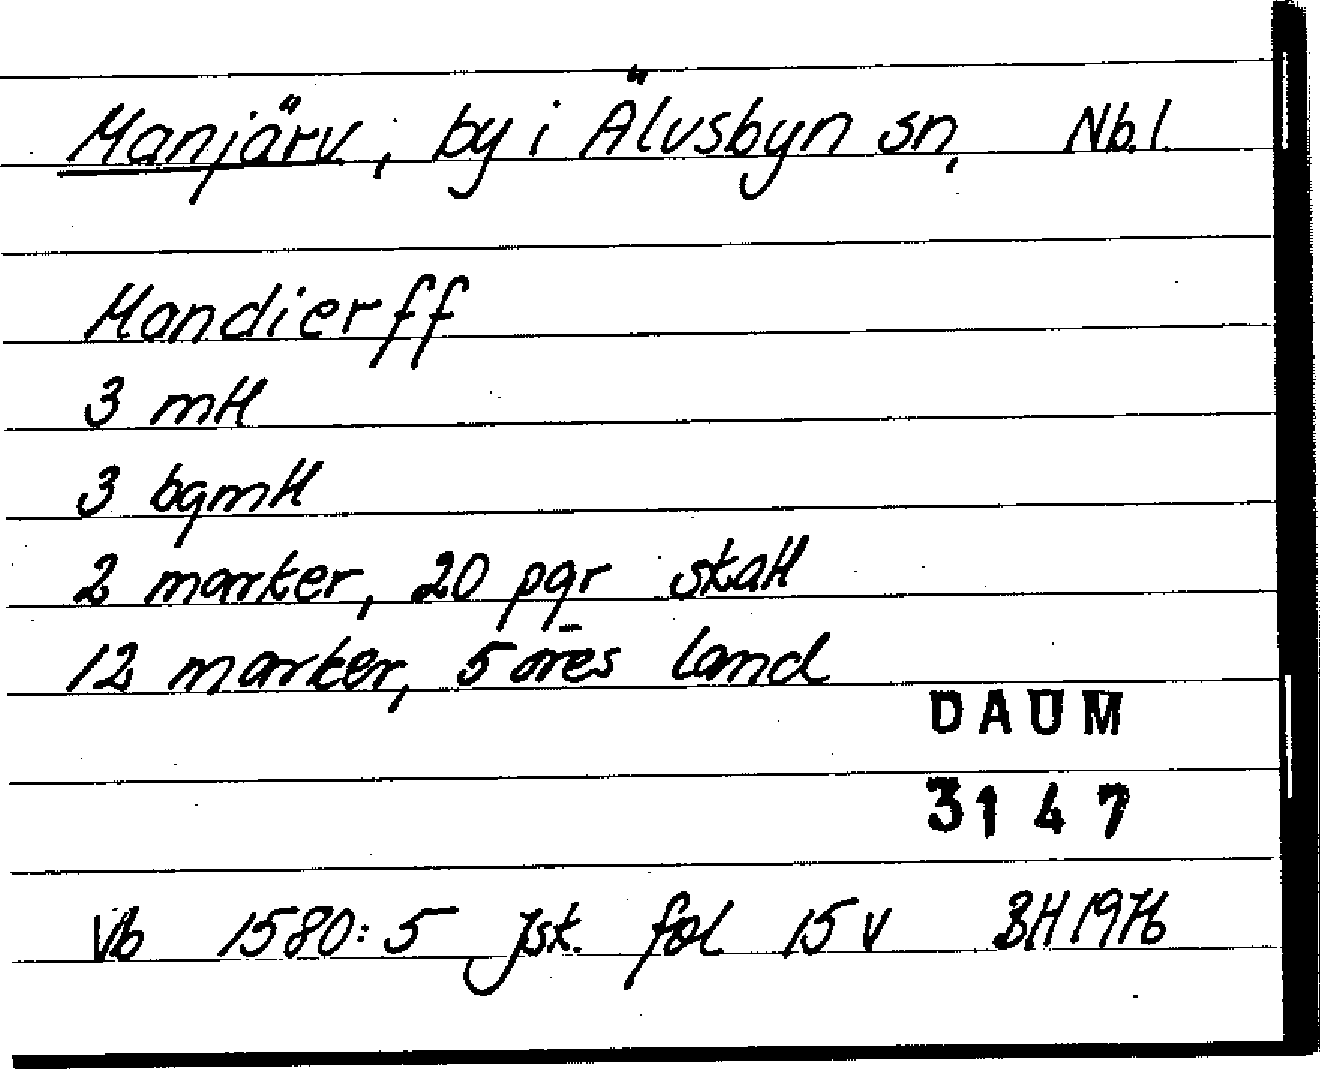 Manjärv, by i Älvsbyn sn, Nb.l.
Mandierff
3 mtl
3 bgmtl
2 marker, 20 pgr skatt
12 marker, 5 öres land
DAUM
3147
Vb 1580:5 Jsk. fol 15 v BH 1976